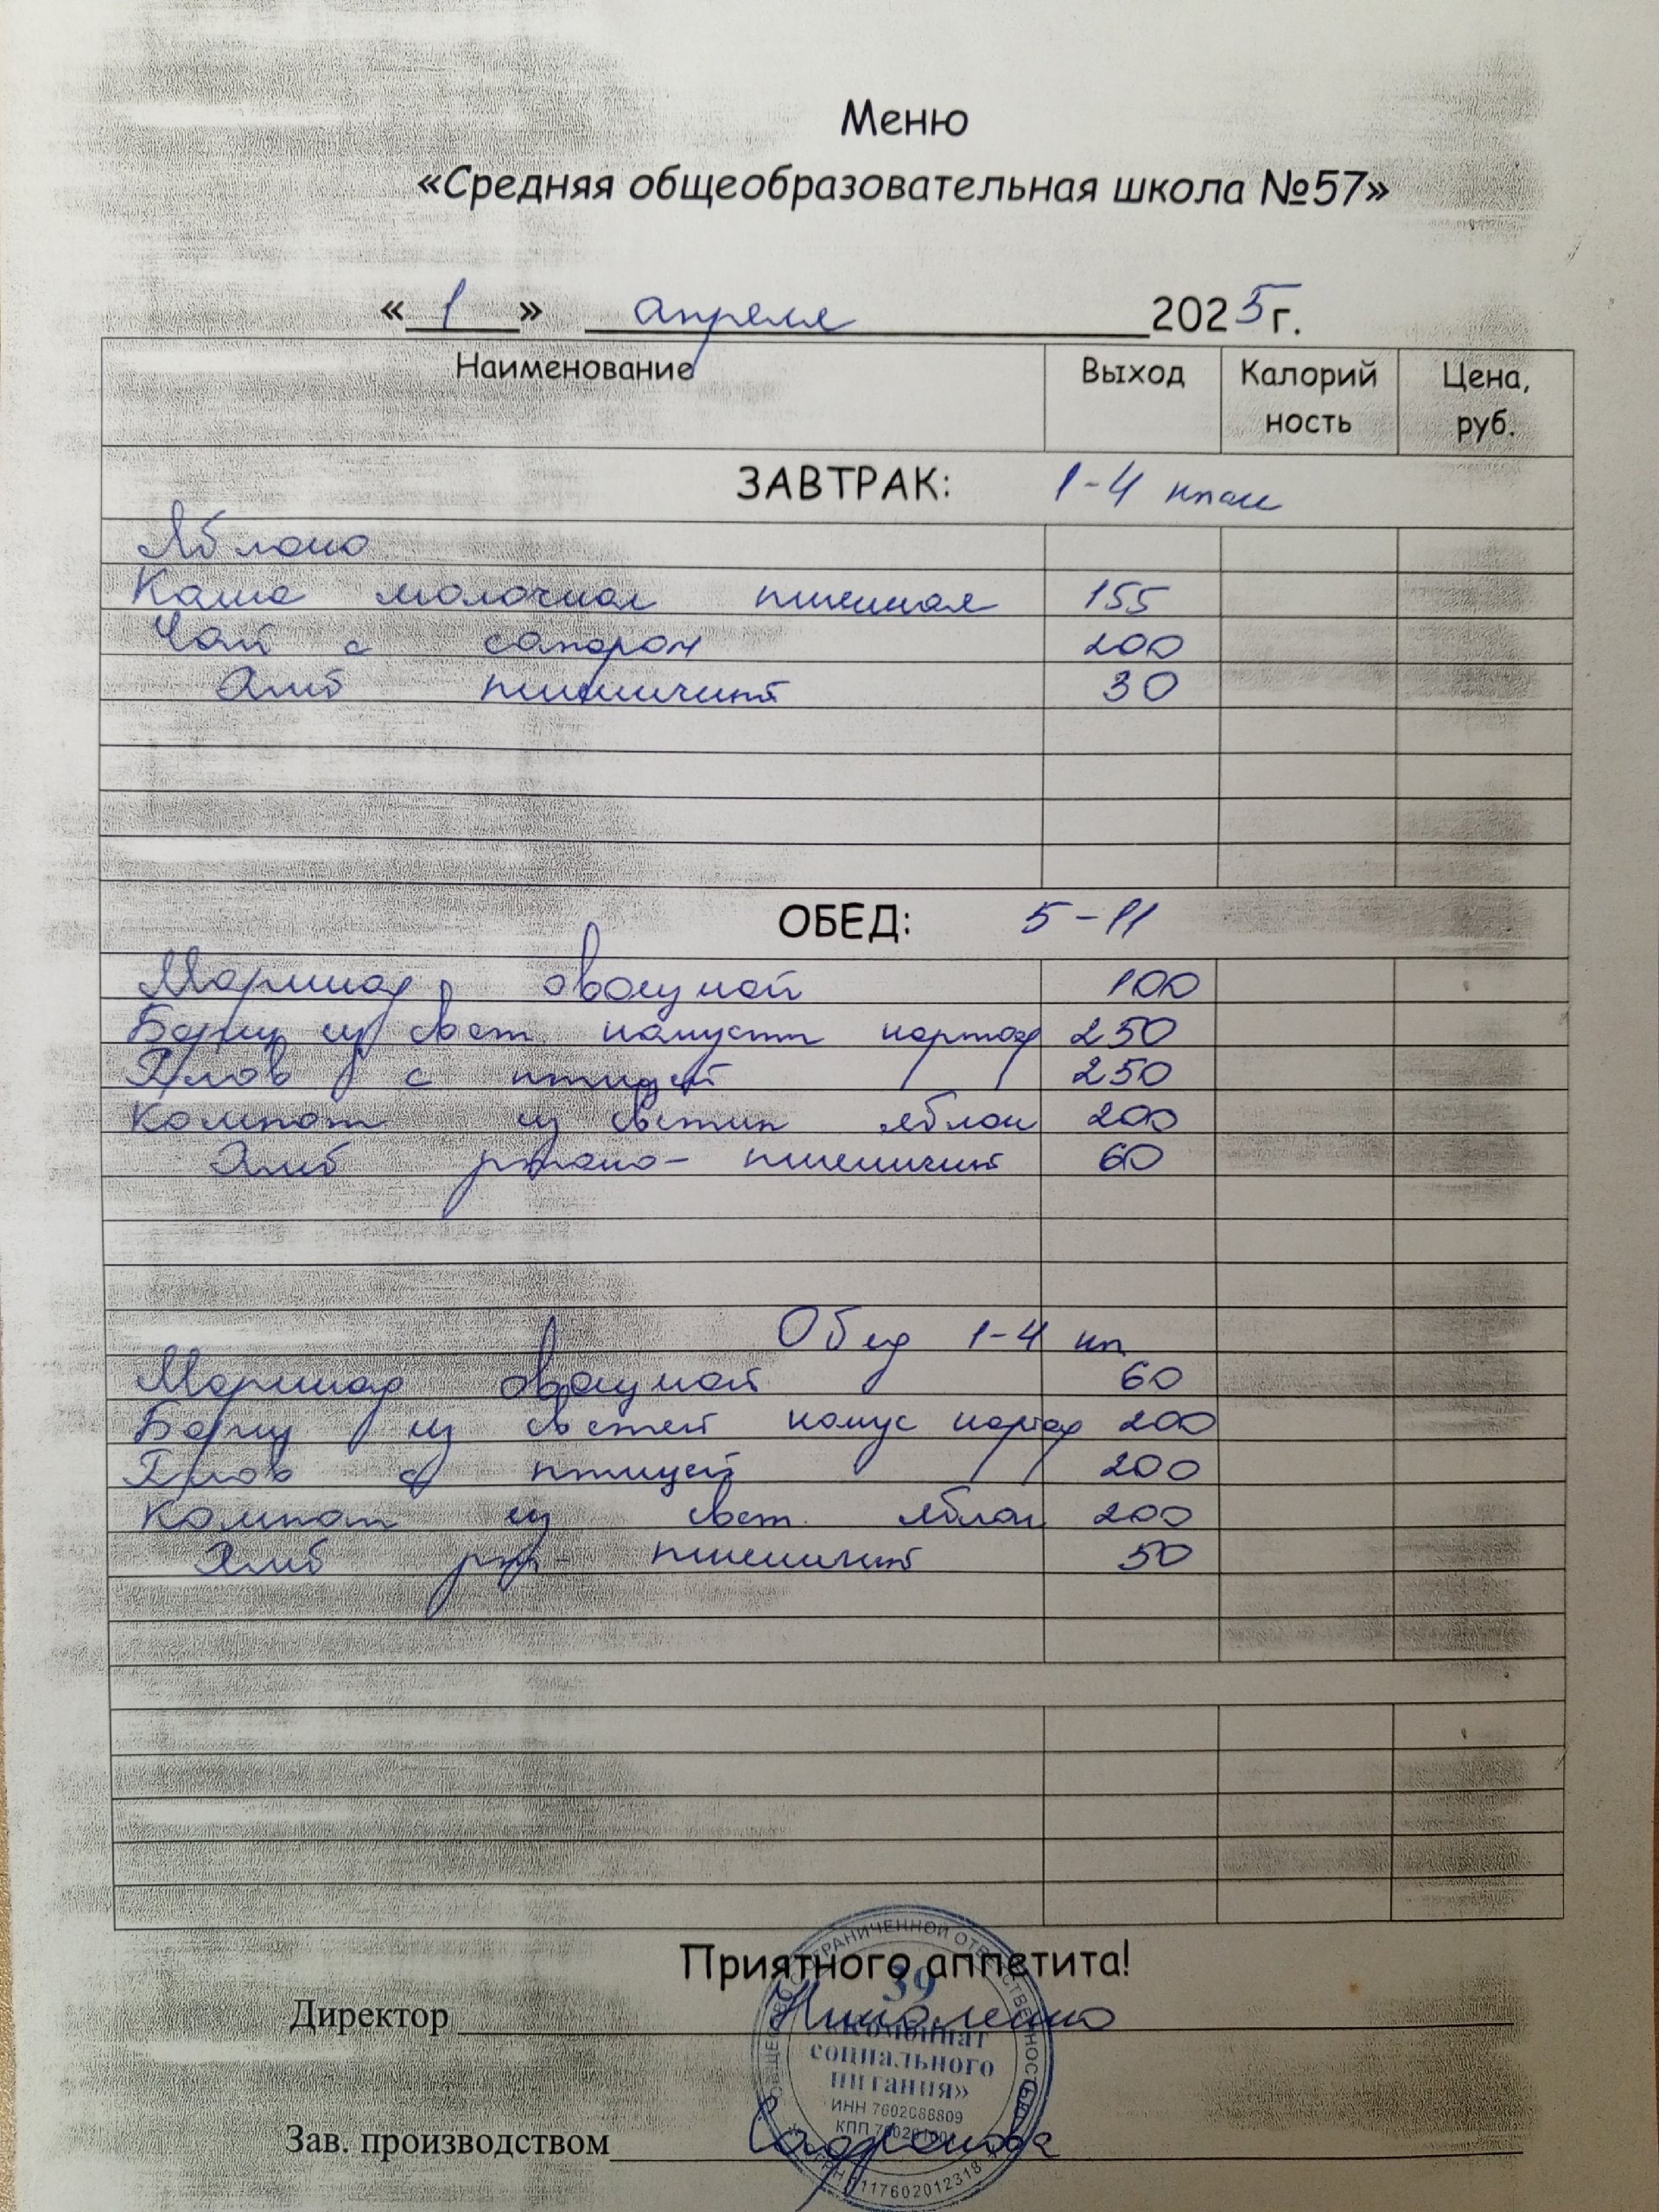 Меню
«Средняя общеобразовательная школа №57»
« 1 » апреля 2025 г.
Наименование Выход Калорий ность Цена, руб.
ЗАВТРАК: 1-4 класс
Яблоко
Каша молочная пшенная 155
Чай с сахаром 200
Хлеб пшеничный 30
ОБЕД: 5-11
Маринад овощной 100
Борщ из свеж. капусты картоф 250
Плов с птицей 250
Компот из свежих яблок 200
Хлеб ржано-пшеничный 60
Обед 1-4 кл
Маринад овощной 60
Борщ из свежей капус картоф 200
Плов с птицей 200
Компот из свеж. яблок 200
Хлеб рж-пшеничный 50
Приятного аппетита!
39
Директор
«Комбинат
социального
питания»
ИНН 7602088809
КПП
Зав. производством